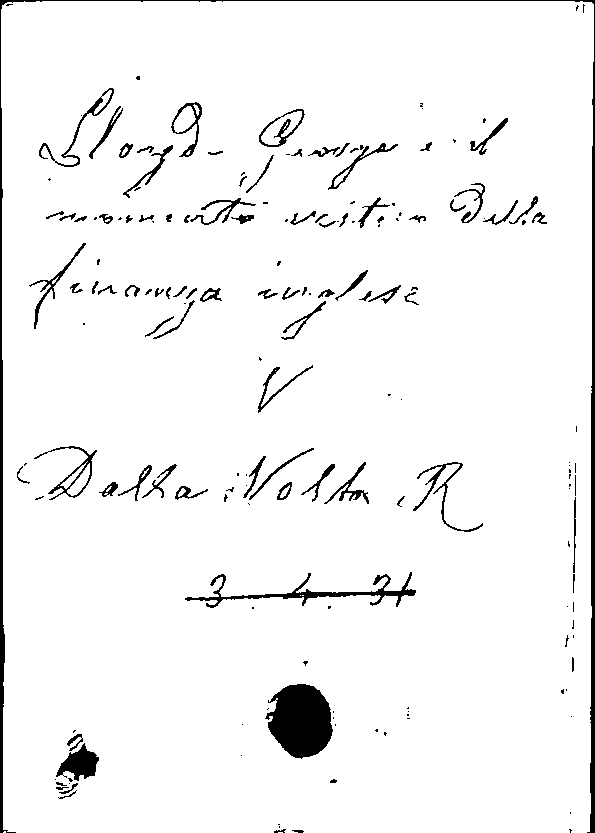 Lloyd-George e il
momento critico della
finanza inglese
V
Dalla Volta, R
3 4 31